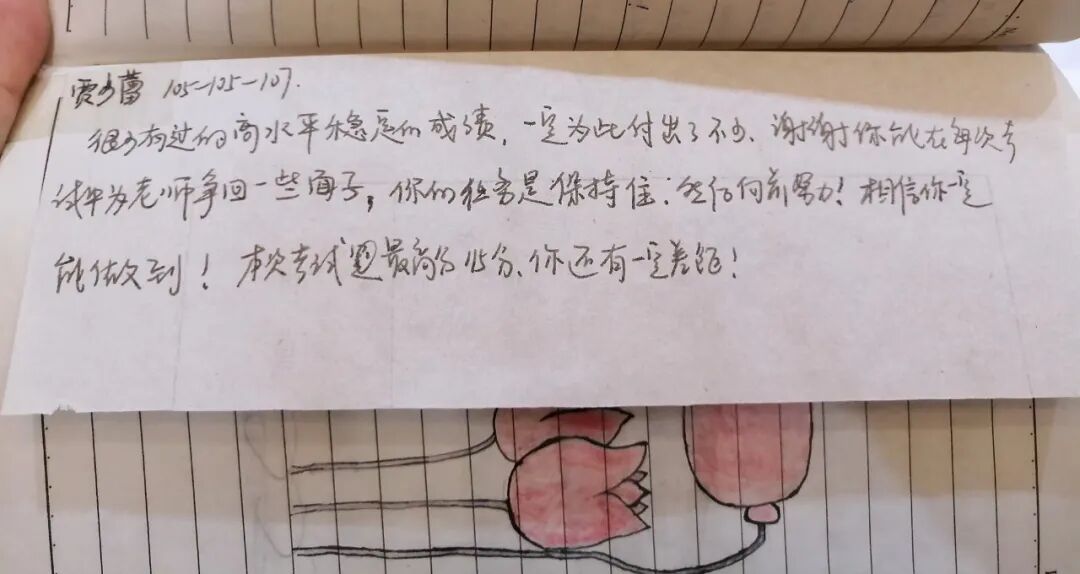 贾少蕾 105-105-107.
很少有过的高水平稳定的成绩,一定为此付出了不少、谢谢你能在每次考
试中为老师争回一些面子,你的任务是保持住;然后向前努力!相信你一定
能做到!本次考试题最高分115分、你还有一定差距!